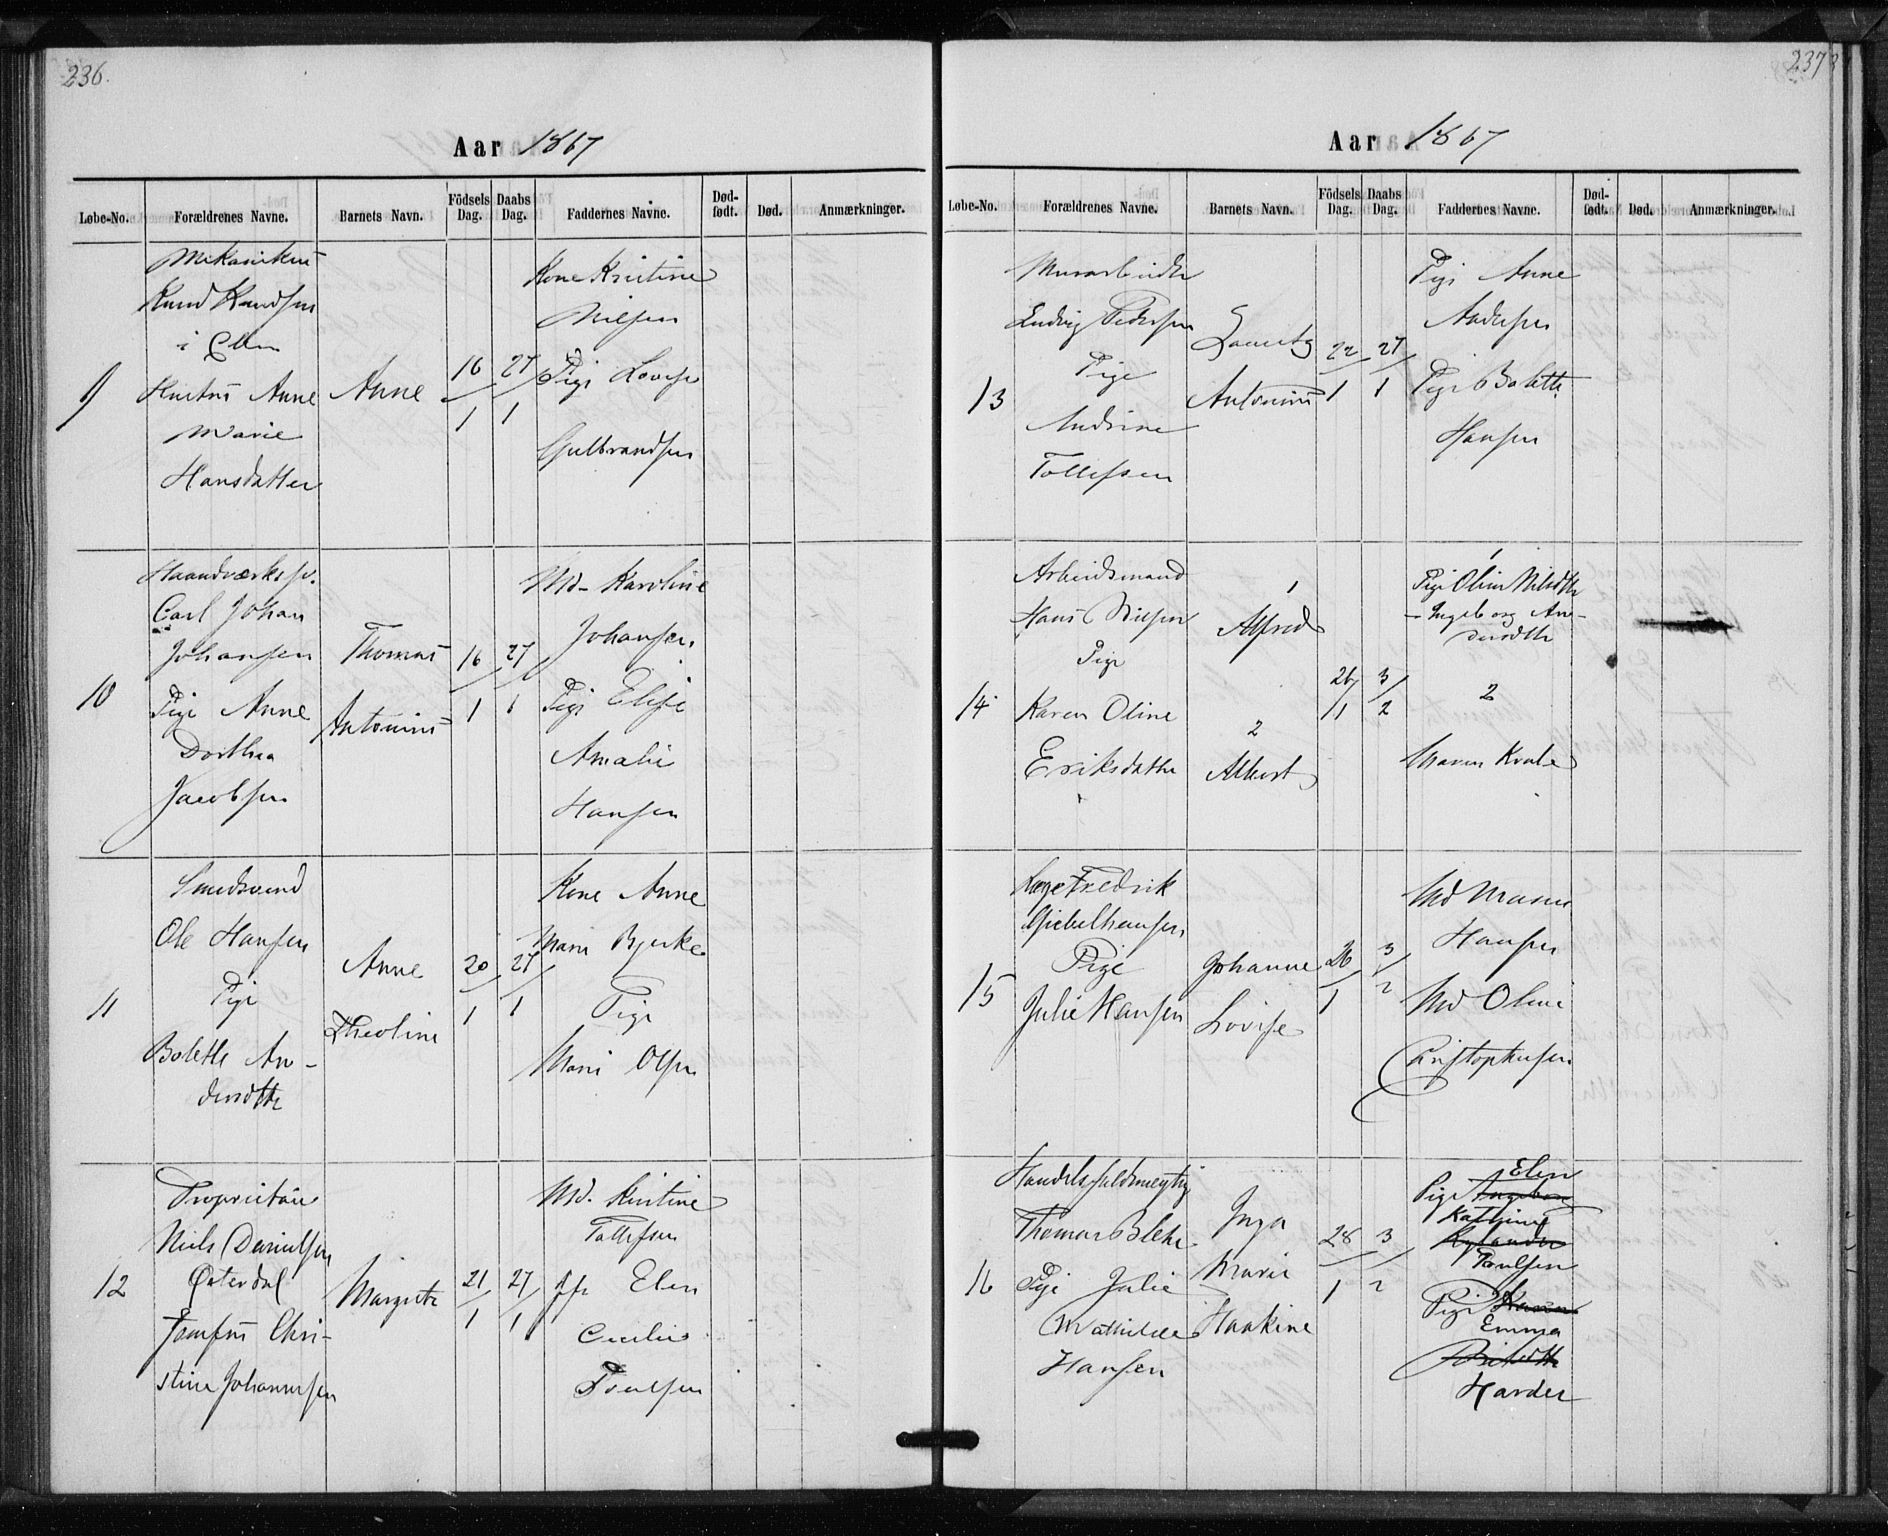 236.
Aar 1867
Løbe-No. Forældrenes Navne. Barnets Navn. Födsels Dag. Daabs Dag. Faddernes Navne. Død-født. Død. Anmærkninger.
9
Mekanikus
Knud Knudsen
Hustru Anne
Marie
Hansdatter
Anne
16/1 27/1
Kone Kristine
Nilsen
Pige Lovise
Gulbrandsen
10
Haandværkssv.
Carl Johan
Johansen
Pige Anne
Dorthea
Jacobsen
Thomas
Antonius
16/1 27/1
Md. Karoline
Johansen
Pige Elise
Amalie
Hansen
11
Smedsvend
Ole Hansen
Pige
Bolette An-
dersdttr
Anne
Theoline
20/1 27/1
Kone Anne
Marie Bjerke
Pige
Marie Olsen
12
Proprietær
Niels Danielsen
Østerdal
Jomfru Chri-
stine Johannesen
Margrete
21/1 27/1
Md. Kristine
Tollefsen
Jfr Elen
Cecilie
Poulsen
2373
Aar 1867
Løbe-No. Forældrenes Navne. Barnets Navn. Födsels Dag. Daabs Dag. Faddernes Navne. Død-født. Død. Anmærkninger.
13
Murarbeider
Ludvig Pedersen
Pige
Andrine
Tollefsen
Lauritz
Antonius
22/1 27/1
Pige Anne
Andersen
Pige Bolette
Hansen
14
Arbeidsmand
Hans Nilsen
Pige
Karen Oline
Eriksdatter
1
Alfred
2
Albert
26/1 3/2
1
Pige Oline Nilsdttr
- Ingeborg An-
dersdttr
2
Maren Kvale
15
Læge Fredrik
Giebelhausen
Pige
Julie Hansen
Johanne
Lovise
26/1 3/2
Md Maren
Hansen
Md Oline
Christophersen
16
Handelsfuldmegtig
Thomas Blehr
Pige Julie
Mathilde
Hansen
Inga
Marie
Haakine
28/1 3/2
Elen
Pige Ingeborg
Kathrine
Rylander
Poulsen
Pige Karen
Emma
Harder